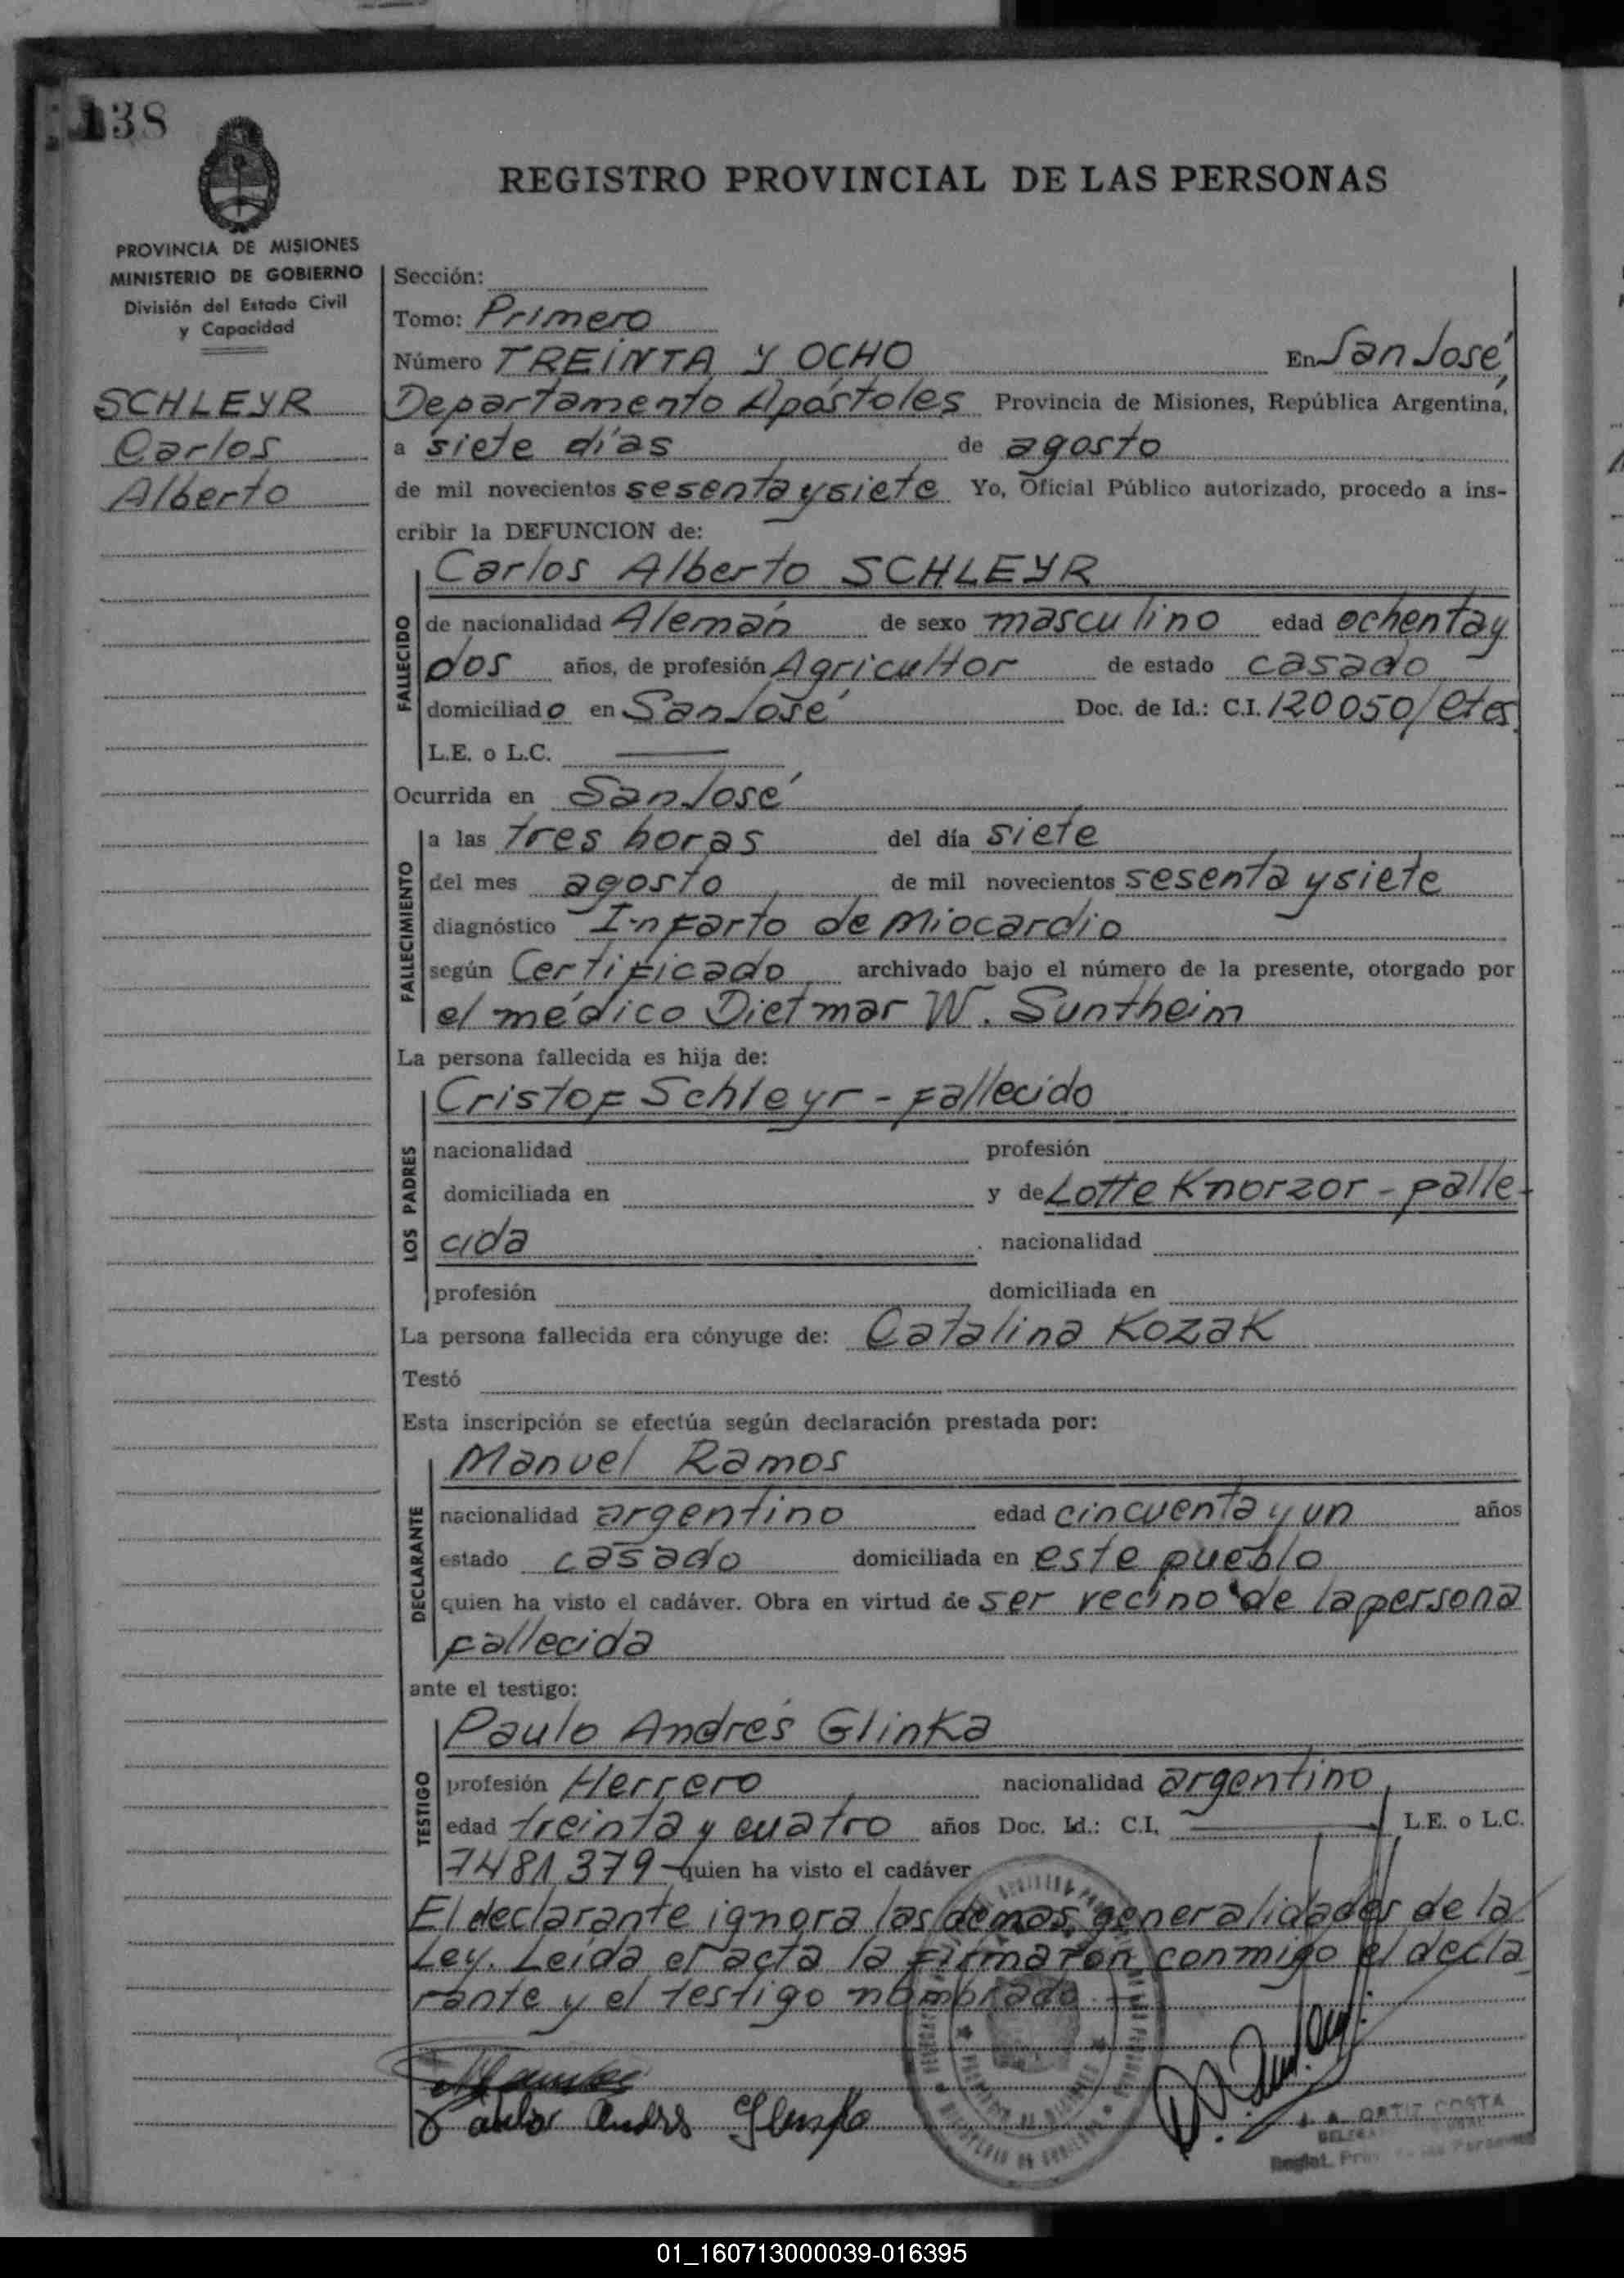 138
REGISTRO PROVINCIAL DE LAS PERSONAS
PROVINCIA DE MISIONES
MINISTERIO DE GOBIERNO
División del Estado Civil
y Capacidad
SCHLEYR
Carlos
Alberto
Sección:
Tomo: Primero
Número TREINTA Y OCHO En San José,
Departamento Apóstoles Provincia de Misiones, República Argentina,
a siete días de agosto
de mil novecientos sesenta y siete Yo, Oficial Público autorizado, procedo a ins-
cribir la DEFUNCION de:
Carlos Alberto SCHLEYR
FALLECIDO
de nacionalidad Alemán de sexo masculino edad ochenta y
dos años, de profesión Agricultor de estado casado
domiciliado en San José Doc. de Id.: C.I. 120050/Ctes.
L.E. o L.C.
Ocurrida en San José
FALLECIMIENTO
a las tres horas del día siete
del mes agosto de mil novecientos sesenta y siete
diagnóstico Infarto de Miocardio
según Certificado archivado bajo el número de la presente, otorgado por
el médico Dietmar W. Suntheim
La persona fallecida es hija de:
LOS PADRES
Cristof Schleyr - fallecido
nacionalidad profesión
domiciliada en y de Lotte Knorzor - falle-
cida nacionalidad
profesión domiciliada en
La persona fallecida era cónyuge de: Catalina Kozak
Testó
Esta inscripción se efectúa según declaración prestada por:
DECLARANTE
Manuel Ramos
nacionalidad argentino edad cincuenta y un años
estado casado domiciliada en este pueblo
quien ha visto el cadáver. Obra en virtud de ser vecino de la persona
fallecida
ante el testigo:
TESTIGO
Paulo Andrés Glinka
profesión Herrero nacionalidad argentino,
edad treinta y cuatro años Doc. Id.: C.I. L.E. o L.C.
7481379 quien ha visto el cadáver
El declarante ignora las demas generalidades de la
Ley. Leida el acta la firmaron conmigo el decla
rante y el testigo nombrado
J. A. ORTIZ COSTA
01_160713000039-016395